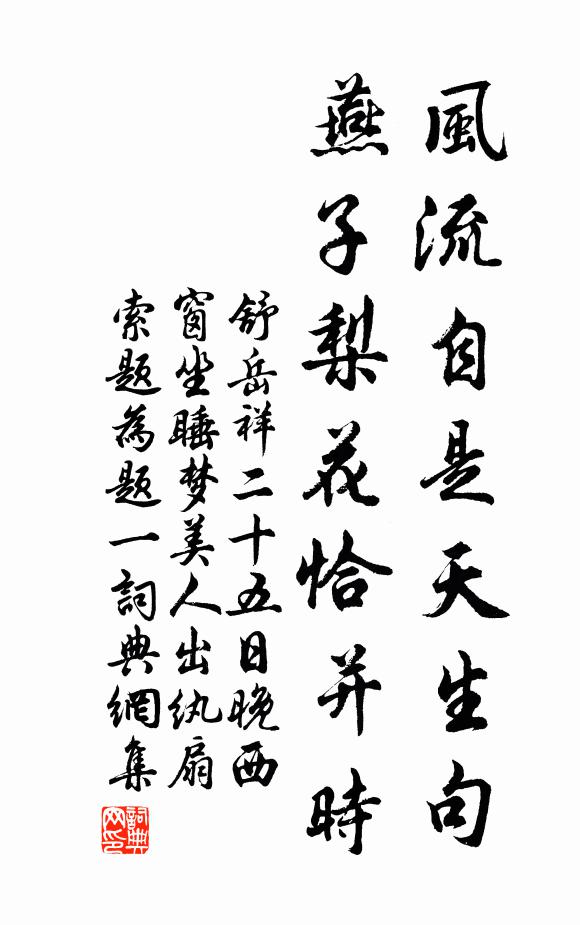 風流自是天生句
燕子梨花恰并時
舒岳祥二十五日晚西
窗坐睡梦美人出纨扇
索題為題一詞典網集
詞典
网印